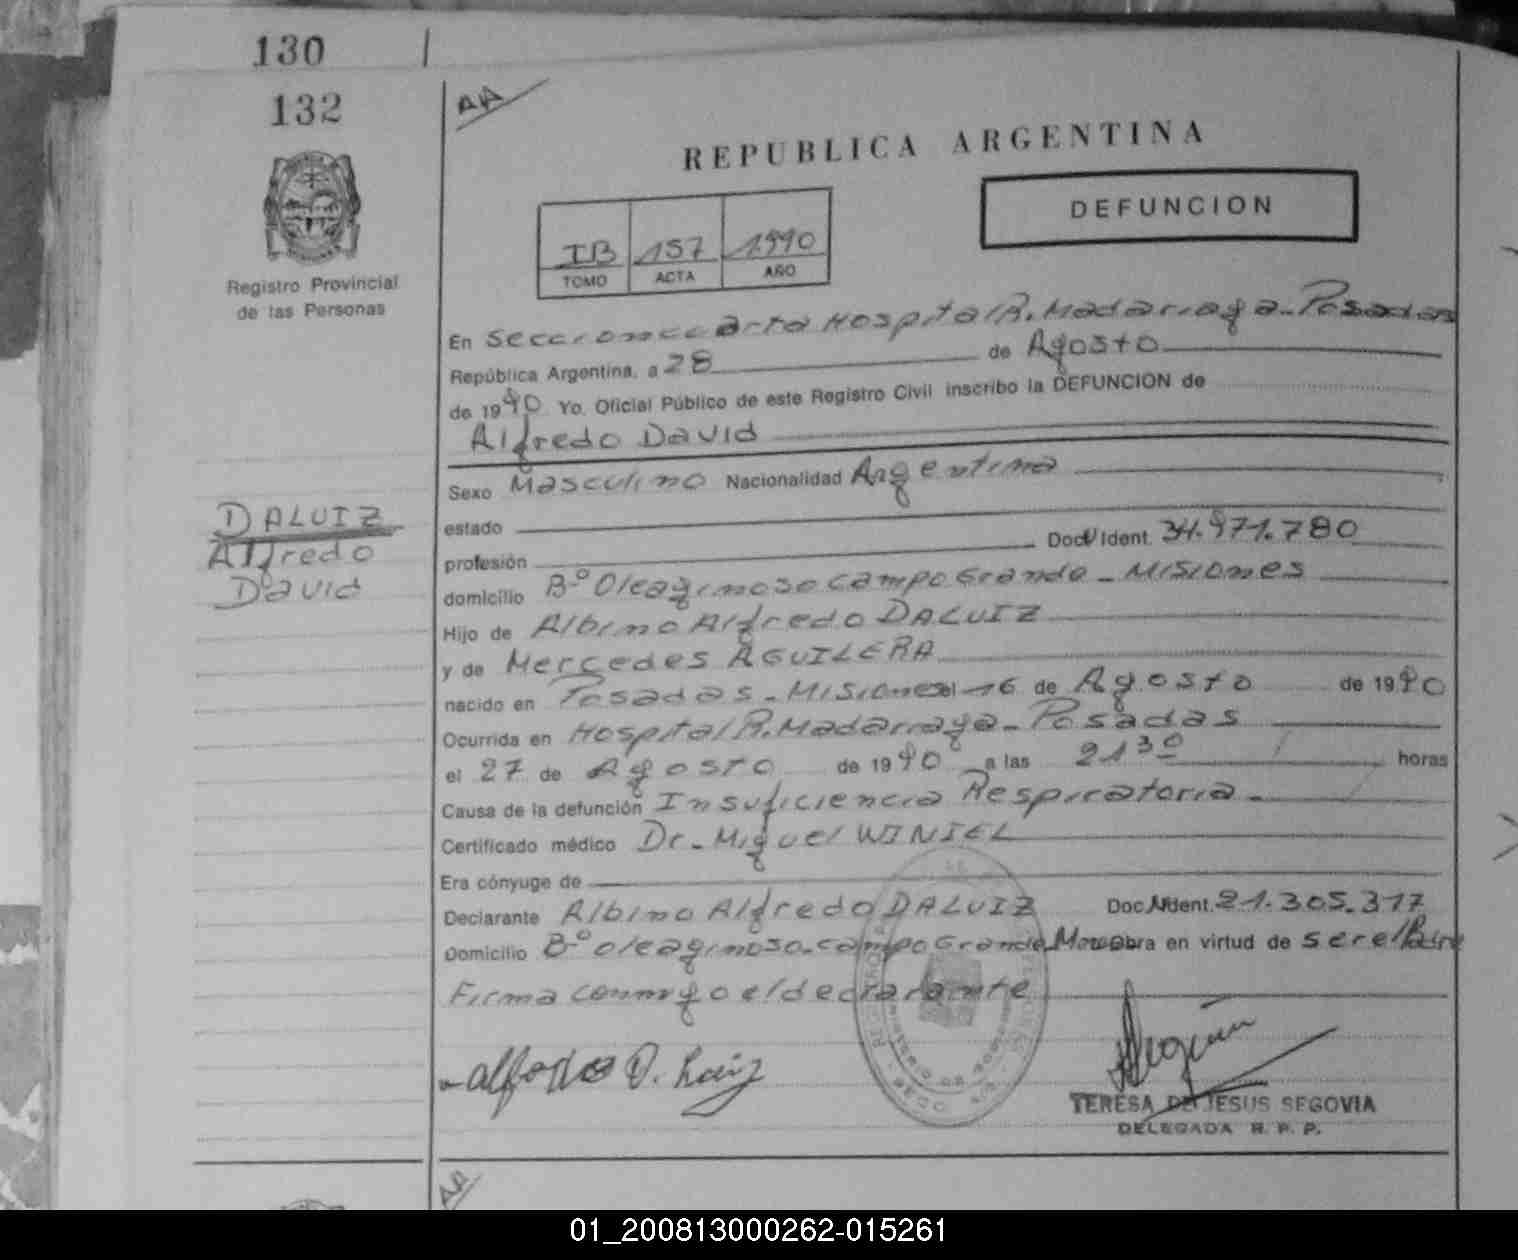 130
132
AA
REPUBLICA ARGENTINA
DEFUNCION
IB 157 1990
TOMO ACTA AÑO
Registro Provincial
de las Personas
En Seccion cuarta Hospital R. Madariaga - Posadas
República Argentina, a 28 de Agosto
de 1990 Yo, Oficial Público de este Registro Civil inscribo la DEFUNCION de
Alfredo David
Sexo Masculino Nacionalidad Argentina
DALUIZ
Alfredo
David
estado
profesión Doc. Ident. 34.971.780
domicilio Bº Oleaginoso Campo Grande - Misiones
Hijo de Albino Alfredo DALUIZ
y de Mercedes AGUILERA
nacido en Posadas - Misiones el 16 de Agosto de 1990
Ocurrida en Hospital R. Madarraga - Posadas
el 27 de Agosto de 1990 a las 21 30 horas
Causa de la defunción Insuficiencia Respiratoria -
Certificado médico Dr. Miguel WINIEL
Era cónyuge de
Declarante Albino Alfredo DALUIZ Doc. Ident. 21.305.317
Domicilio Bº Oleaginoso - Campo Grande Obra en virtud de ser el Padre
Firma conmigo el declarante
TERESA DE JESUS SEGOVIA
DELEGADA R. P. P.
AA
01_200813000262-015261